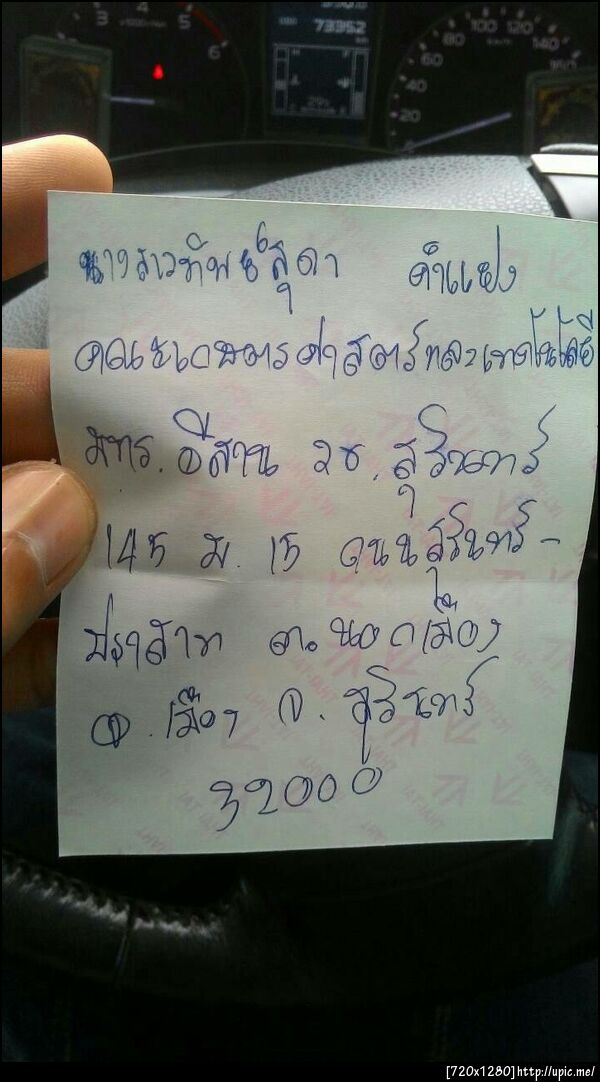 3
4
5
6
x1000r/min
73352
20
40
60
80
100
120
140
km/h
นางสาวทิพย์สุดา คำแฝง
คณะเกษตรศาสตร์และเทคโนโลยี
มทร. อีสาน วข. สุรินทร์
145 ม. 15 ถนนสุรินทร์-
ปราสาท ต. นอกเมือง
อ. เมือง จ. สุรินทร์
32000
[720x1280]http://upic.me/